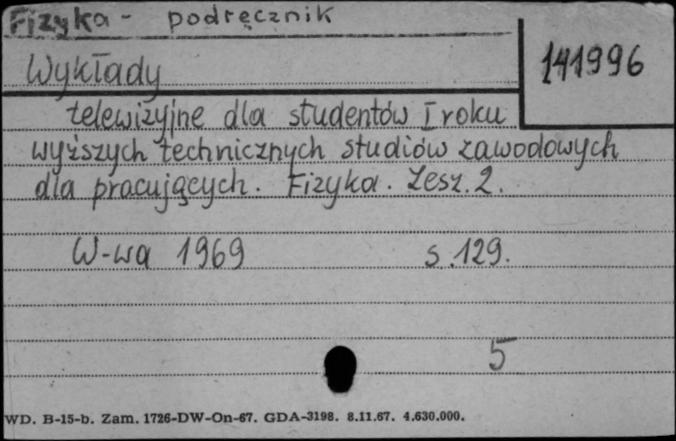 Fizyka - podręcznik
141996
Wykłady
telewizyjne dla studentów I roku
wyższych technicznych studiów zawodowych
dla pracujących. Fizyka. Zesz. 2.
W-wa 1969 s. 129.
5
WD. B-15-b. Zam. 1726-DW-On-67. GDA-3198. 8.11.67. 4.630.000.